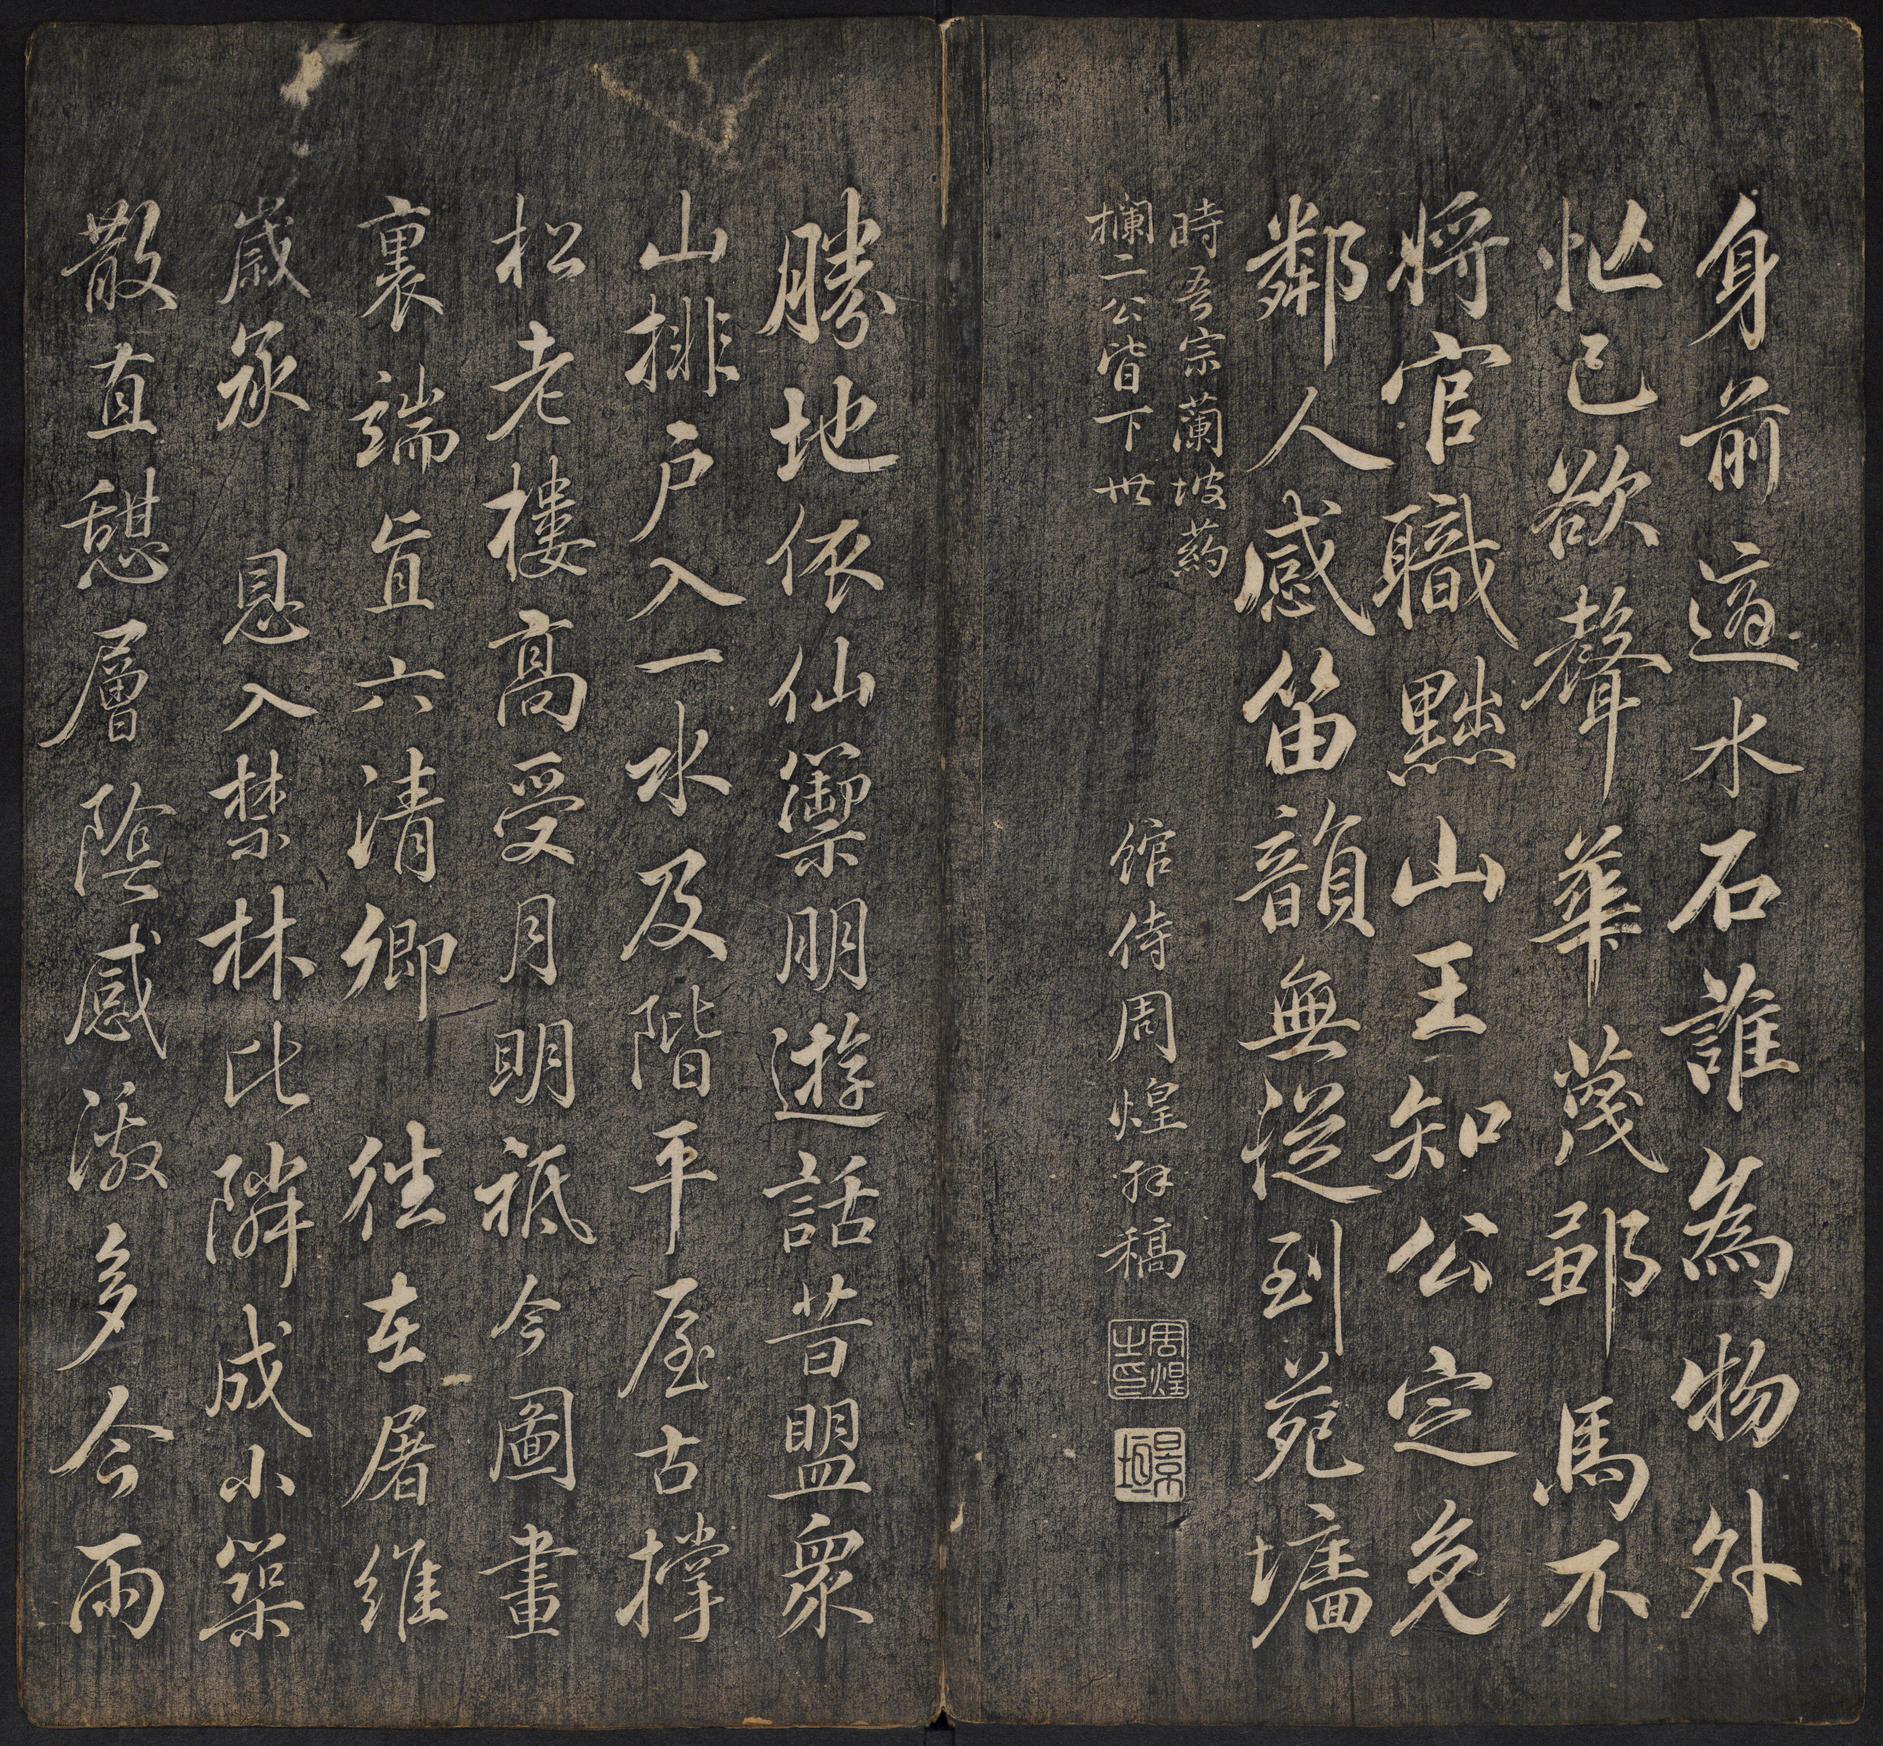 身前適水石誰為物外
忙已欲聲華薎郵馬不
將官職黜山王知公定免
鄰人感笛韻無從到菀墻
時吾宗蘭坡葯
欄二公皆下世
館侍周煌拜稿
周煌之印
景垣
勝地依仙籞朋遊話昔盟衆
山排戶入一水及階平屋古撐
松老樓高受月明祗今圖畫
裏端宜六清卿 徃在屠維
嵗承 恩入禁林比隣成小築
散直憇層陰感激多今雨